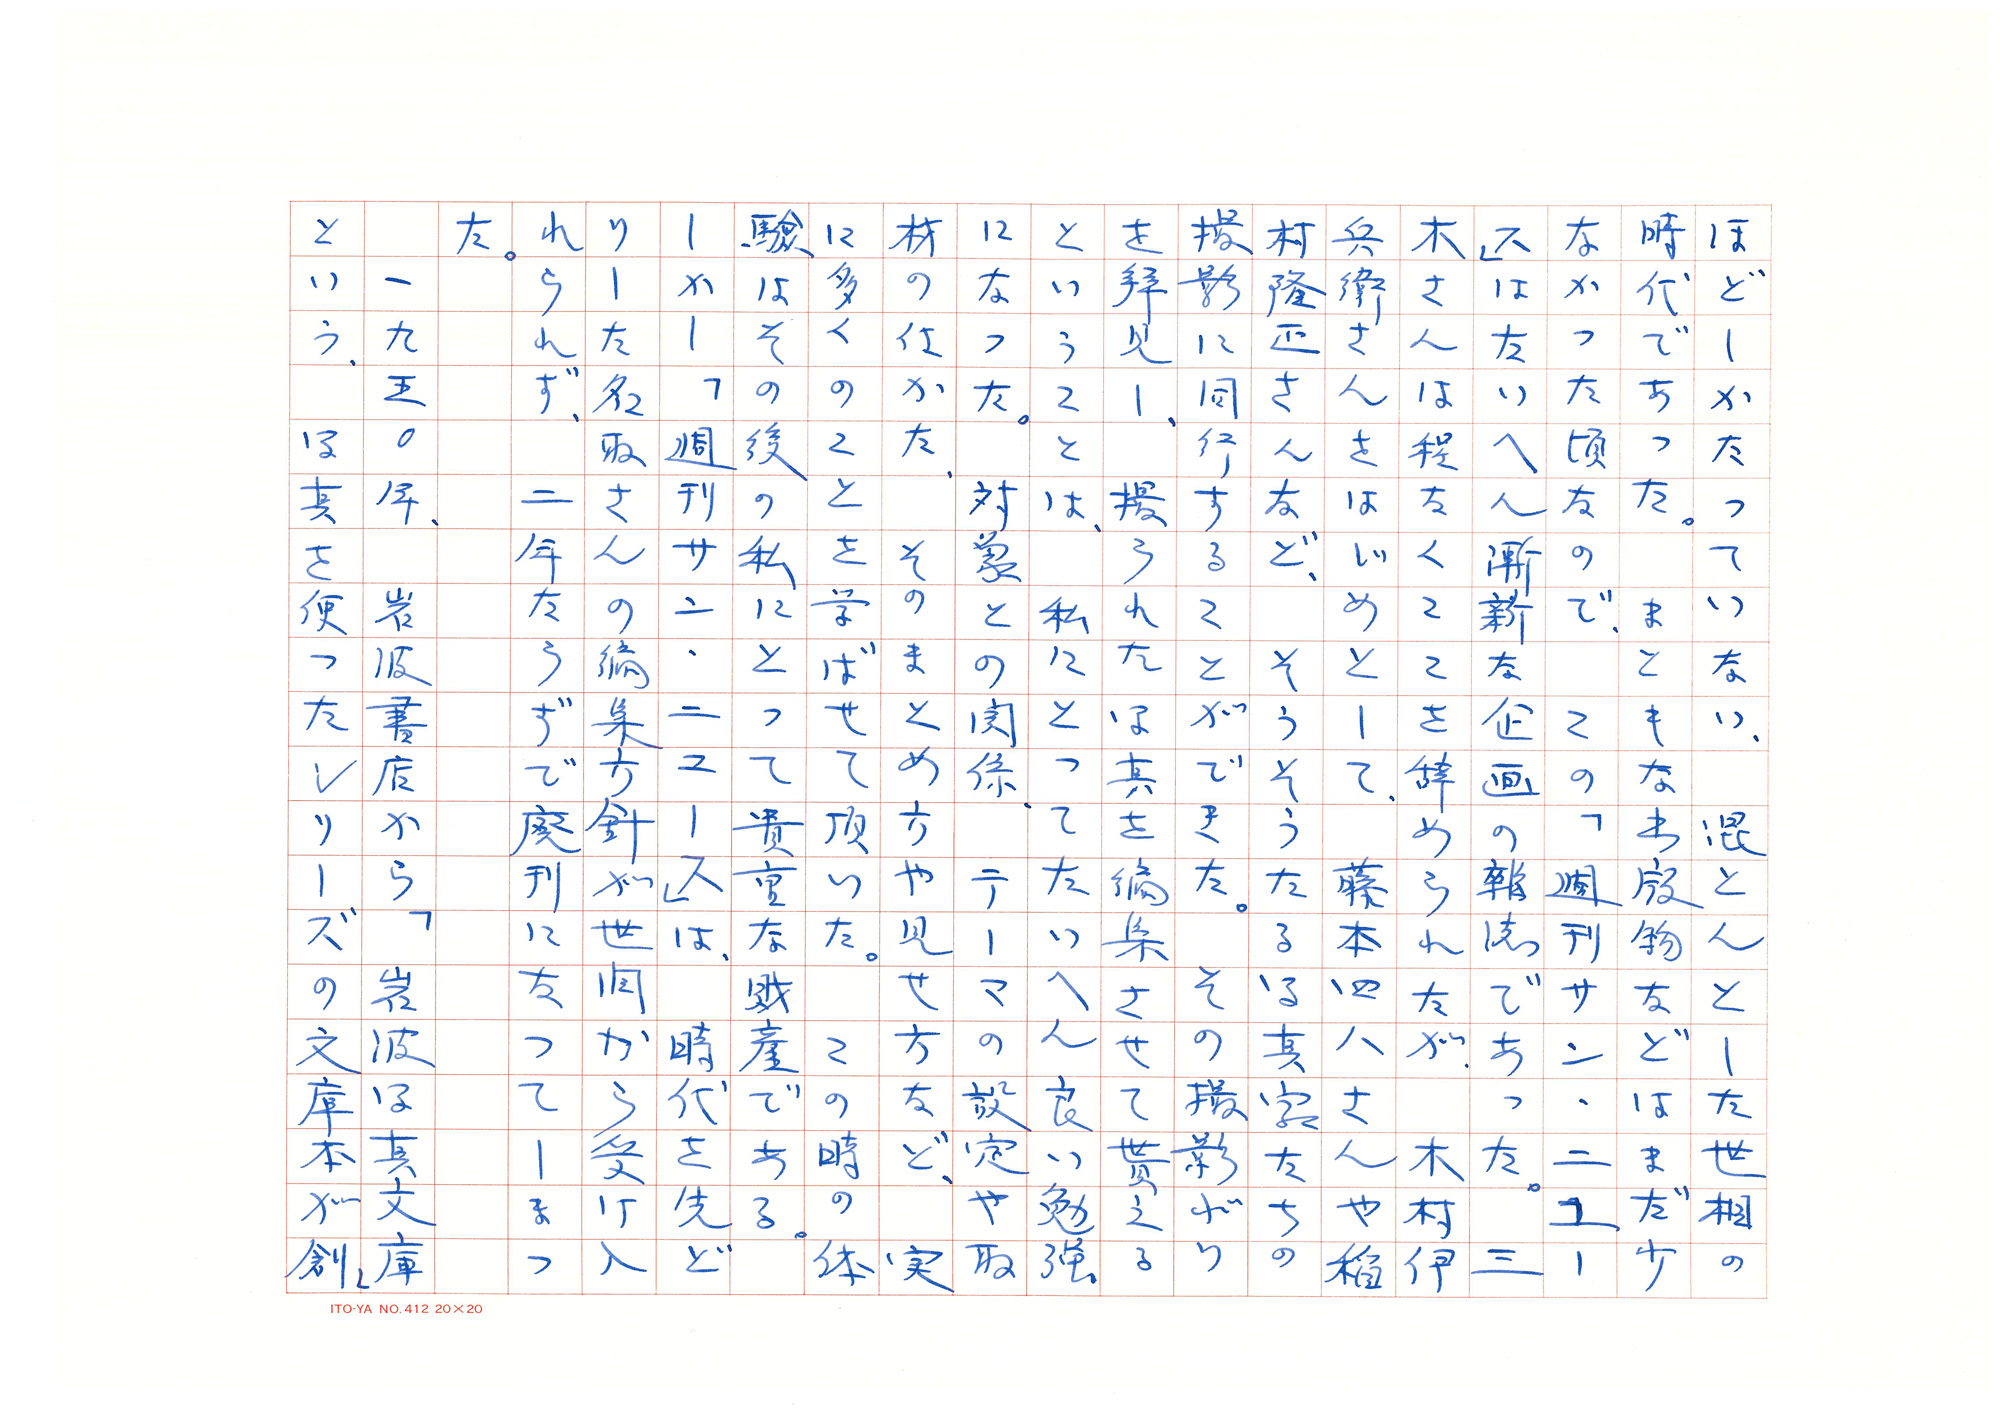 ほどしかたっていない、混とんとした世相の
時代であった。まともな出版物などはまだ少
なかった頃なので、この「週刊サン・ニュー
ス」はたいへん漸新な企画の雑誌であった。三
木さんは程なくここを辞められたが、木村伊
兵衛さんをはじめとして、藤本四八さんや稲
村隆正さんなど、そうそうたる写真家たちの
撮影に同行することができた。その撮影ぶり
を拝見し、撮られた写真を編集させて貰える
ということは、私にとってたいへん良い勉強
になった。対象との関係、テーマの設定や取
材の仕かた、そのまとめ方や見せ方など、実
に多くのことを学ばせて頂いた。この時の体
験はその後の私にとって貴重な財産である。
しかし「週刊サン・ニュース」は、時代を先ど
りした名取さんの編集方針が世間から受け入
れられず、二年たらずで廃刊になってしまっ
た。
一九五〇年、岩波書店から「岩波写真文庫」
という、写真を使ったシリーズの文庫本が創
ITO-YA NO.412 20×20